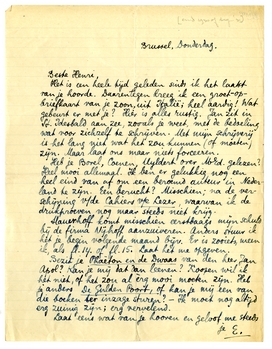 Brussel, Donderdag.
Beste Henri,
Het is een heele tijd geleden sinds ik het laatst
van je hoorde. Daarentegen kreeg ik een groet-op-
briefkaart van je zoon, uit Italië; heel aardig! Wat
gebeurt er met je? Hier is alles rustig. Jan zit in
St. Idesbald aan zee, zoals je weet, met de bedoeling
wat voor zichzelf te schrijven. Met mijn schrijverij
is het lang niet wat het zou kunnen (of moeten)
zijn. Maar laat ons maar niet forceeren.
Heb je Borel, Coenen, Uyldert over M.t.D. gelezen?
Heel mooi allemaal. Ik ben er gelukkig nog een
heel eind van af om een beroemd auteur in Neder-
land te zijn. Een beruchte? Misschien, na de ver-
schijning v/d Cahiers v/e Lezer, waarvan ik de
drukproeven nog maar steeds niet krijg.
Slauerhoff komt misschien eerstdaags mijn schuld
bij de firma Nijhoff aanzuiveren. Anders stuur ik
het je begin volgende maand bijv. Er is zooiets meen
ik als fl. 14. of fl. 15. Laat het me opgeven.
Bezit je Phaëton en de Dwaas van den heer Jan
Apol? Kan mij dat Jan leenen? Roosen wil ik
het niet, of het zou al erg mooi moeten zijn. Heb
je anders De Gulden Poort, of kan je mij een van
die boeken ter inzage sturen? Ik moet nog altijd
erg zuinig zijn; erg vervelend.
Laat eens wat van je hooren en geloof me steeds
je E.